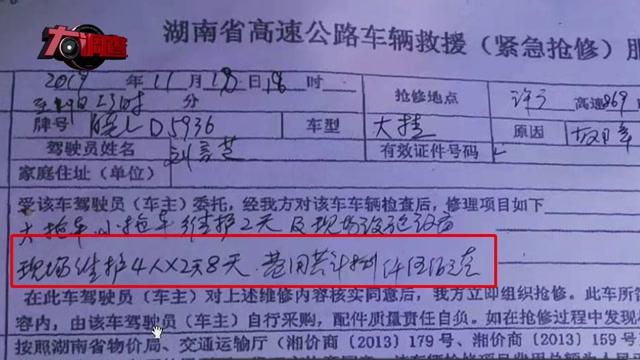 大调查
湖南省高速公路车辆救援(紧急抢修)服
2019年11月18日18时
分
抢修地点 高速869
牌号 皖L D5936 车型 大挂 原因 故障
驾驶员姓名 刘 有效证件号码
家庭住址(单位)
受该车驾驶员(车主)委托,经我方对该车车辆检查后,修理项目如下
大拖车 小拖车 维护2天及现场设施设备
现场维护4人×2天8天 费用共计 仟伍佰元
在此车驾驶员(车主)对上述维修内容核实同意后,我方立即组织抢修。此车所管
容内,由该车驾驶员(车主)自行采购,配件质量责任自负。如在抢修过程中发现
按照湖南省物价局、交通运输厅(湘价商〔2013〕179号、湘价商〔2013〕159号